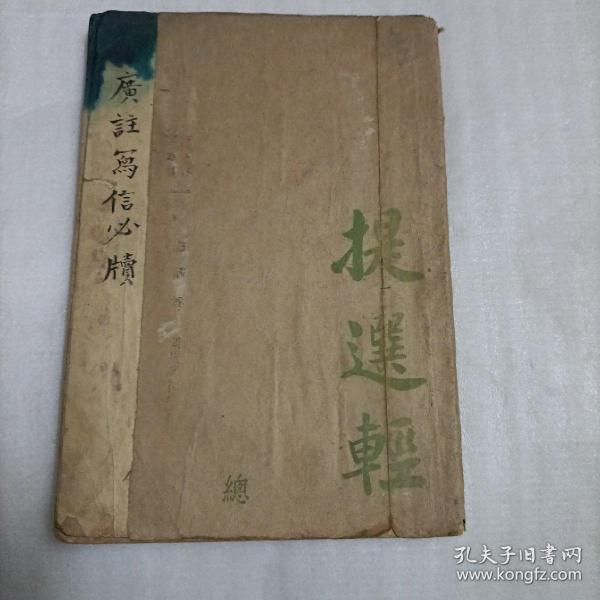 廣註寫信必牘
提選輕
總
孔夫子旧书网
www.kongfz.com